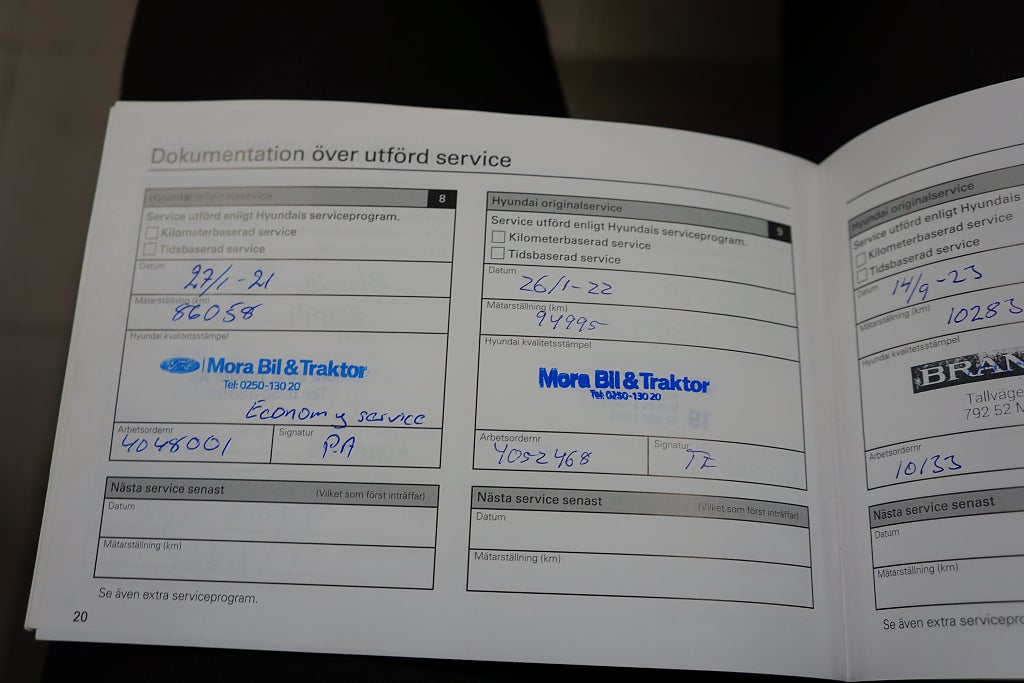 Dokumentation över utförd service
Hyundai originalservice 8
Service utförd enligt Hyundais serviceprogram.
Kilometerbaserad service
Tidsbaserad service
Datum
27/1-21
Mätarställning (km)
86058
Hyundai kvalitetsstämpel
Ford Mora Bil & Traktor
Tel: 0250-130 20
Economy service
Arbetsordernr
4048001
Signatur
P.A
Nästa service senast (Vilket som först inträffar)
Datum
Mätarställning (km)
Se även extra serviceprogram.
20
Hyundai originalservice 9
Service utförd enligt Hyundais serviceprogram.
Kilometerbaserad service
Tidsbaserad service
Datum
26/1-22
Mätarställning (km)
94995
Hyundai kvalitetsstämpel
Mora Bil & Traktor
Tel: 0250-130 20
Arbetsordernr
4052468
Signatur
TE
Nästa service senast (Vilket som först inträffar)
Datum
Mätarställning (km)
Hyundai originalservice
Service utförd enligt Hyundais
Kilometerbaserad service
Tidsbaserad service
Datum
14/9-23
Mätarställning (km)
10283
Hyundai kvalitetsstämpel
BRAN
Tallväge
792 52 M
Arbetsordernr
10133
Nästa service senast
Datum
Mätarställning (km)
Se även extra servicepro